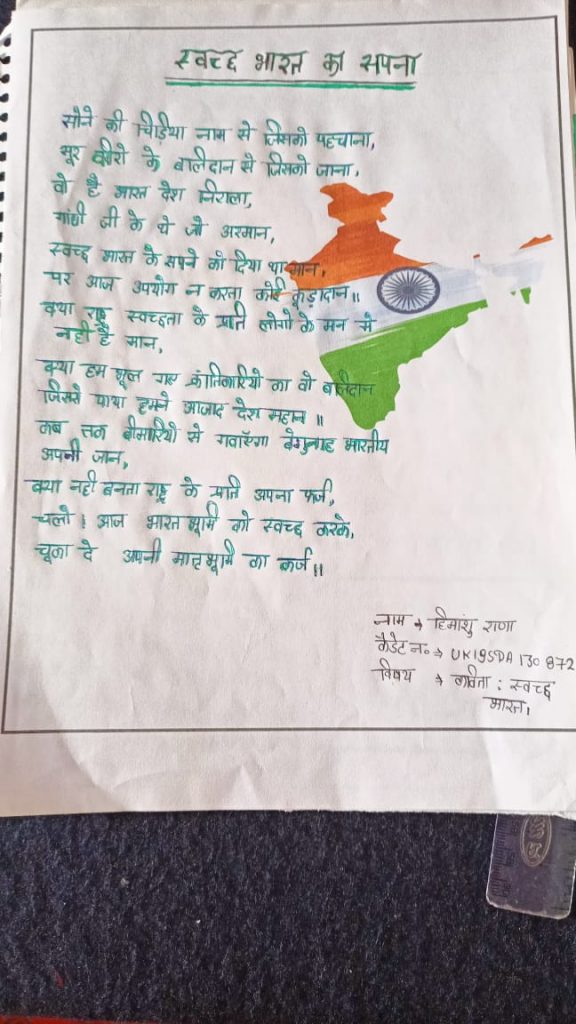 स्वच्छ भारत का सपना
सोने की चिड़िया नाम से जिसको पहचाना,
शूर वीरो के बालिदान से जिसको जाना,
वो है भारत देश निराला,
गांधी जी के थे जो अरमान,
स्वच्छ भारत के सपने को दिया था मान,
पर आज उपयोग न करता कोई कूड़ादान॥
क्या राष्ट्र स्वच्छता के प्रति लोगो के मन मे
नही है मान,
क्या हम भूल गए क्रांतिकारियो का वो बलिदान
जिससे पाया हमने आजाद देश महान॥
कब तक बीमारियो से गवाएगा बेगुनाह भारतीय
अपनी जान,
क्या नही बनता राष्ट्र के प्रति अपना फर्ज,
चलो। आज भारत भूमि को स्वच्छ करके,
चूका दे अपनी मातृभूमि का कर्ज॥
नाम → हिमांशु राणा
कैडेट न० → UK19SDA130872
विषय → कविता : स्वच्छ
भारत।